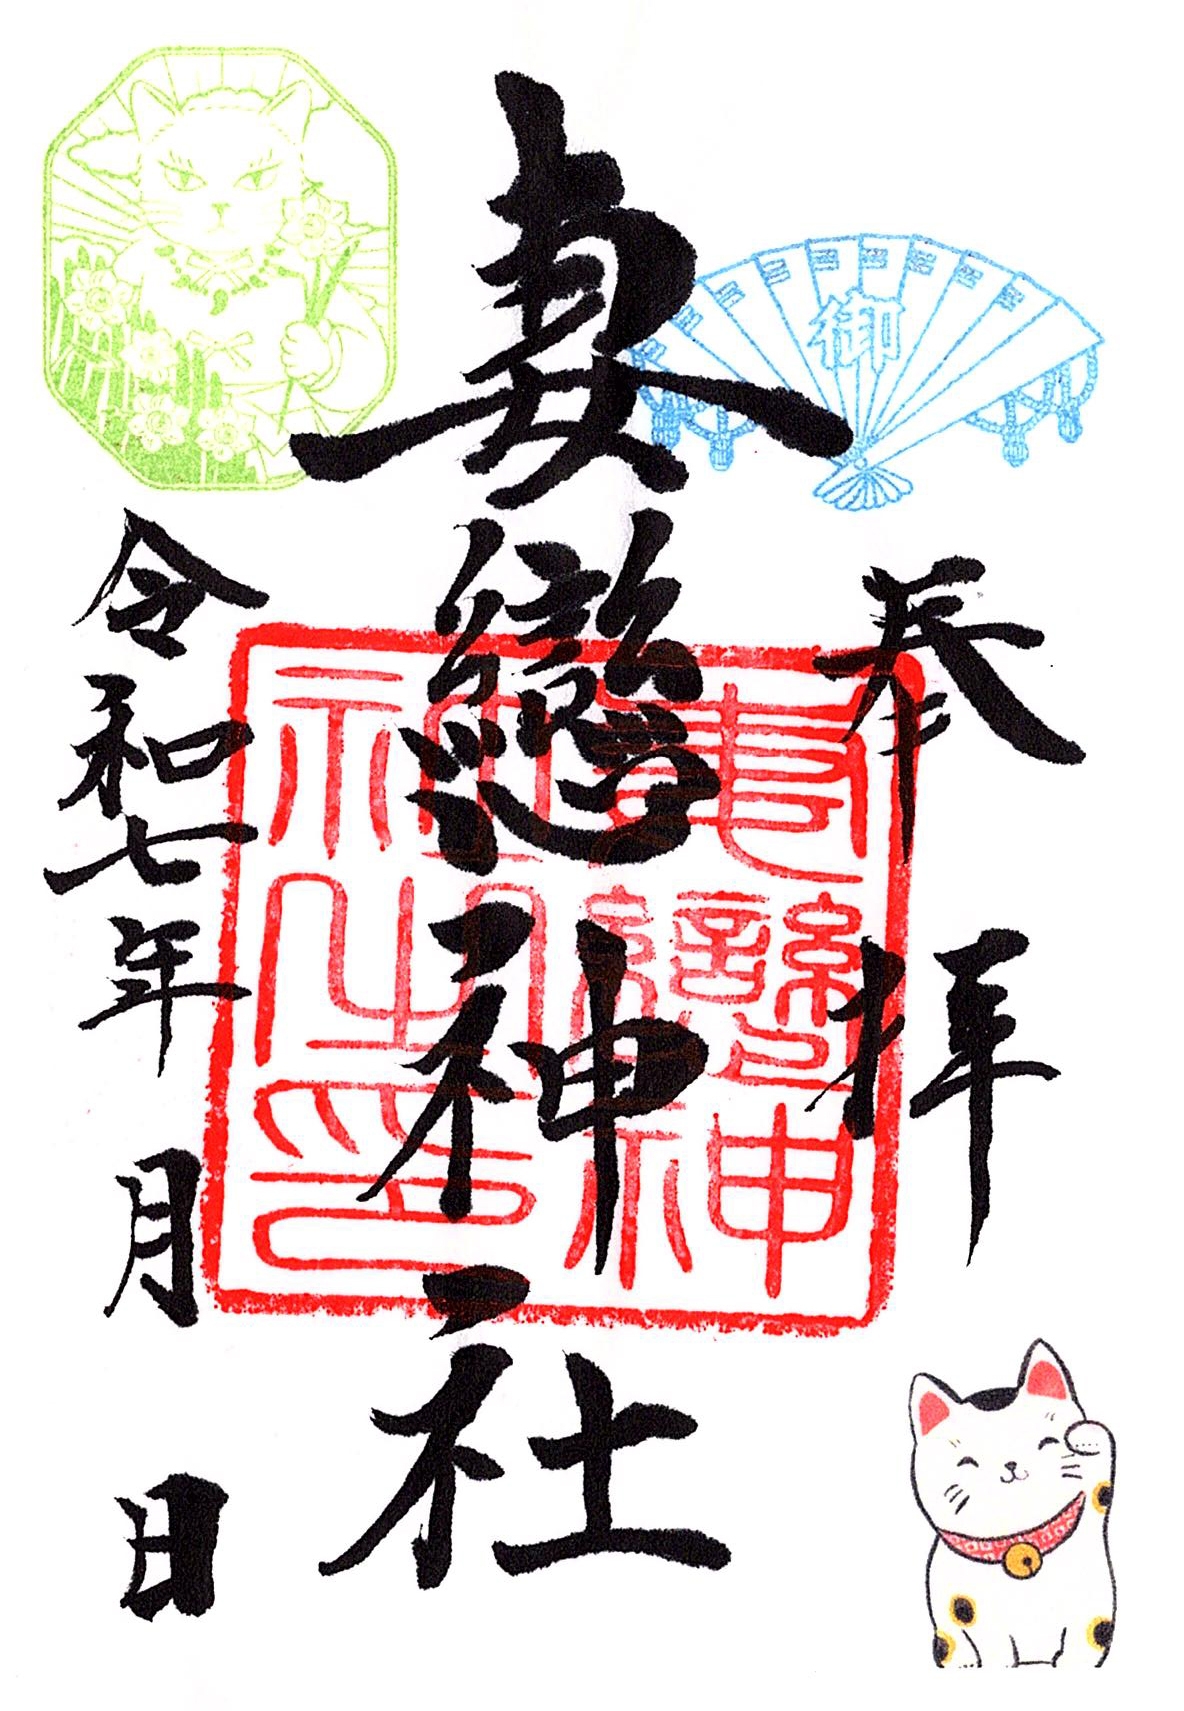 奉拝
御
妻戀神社
妻戀神
社之印
令和七年 月 日